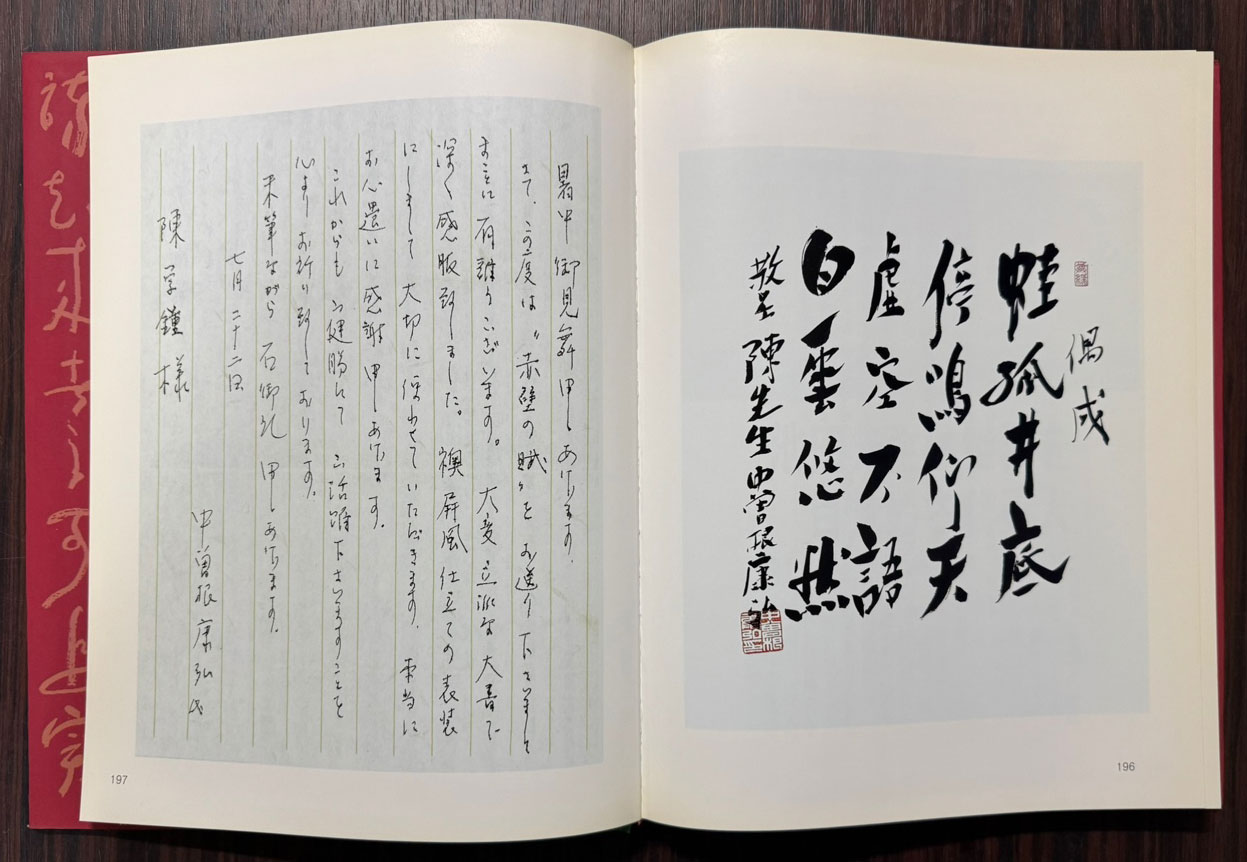 偶成
蛙孤井底
倍鳴仰天
虚空不語
白雲悠然
敬呈 陳先生 中曽根康弘
196
暑中御見舞申しあげます。
さて、この度は〝赤壁の賦〟をお送り下さいまして
まことに有難うございます。大変立派な大書で
深く感服致しました。襖屏風仕立ての表装
にしまして大切に使わせていただきます。本当に
お心遣いに感謝申しあげます。
これからもご健勝にてご活躍下さいますことを
心よりお祈り致しております。
末筆ながら右御礼申しあげます。
七月二十二日
中曽根康弘
陳学鐘様
197